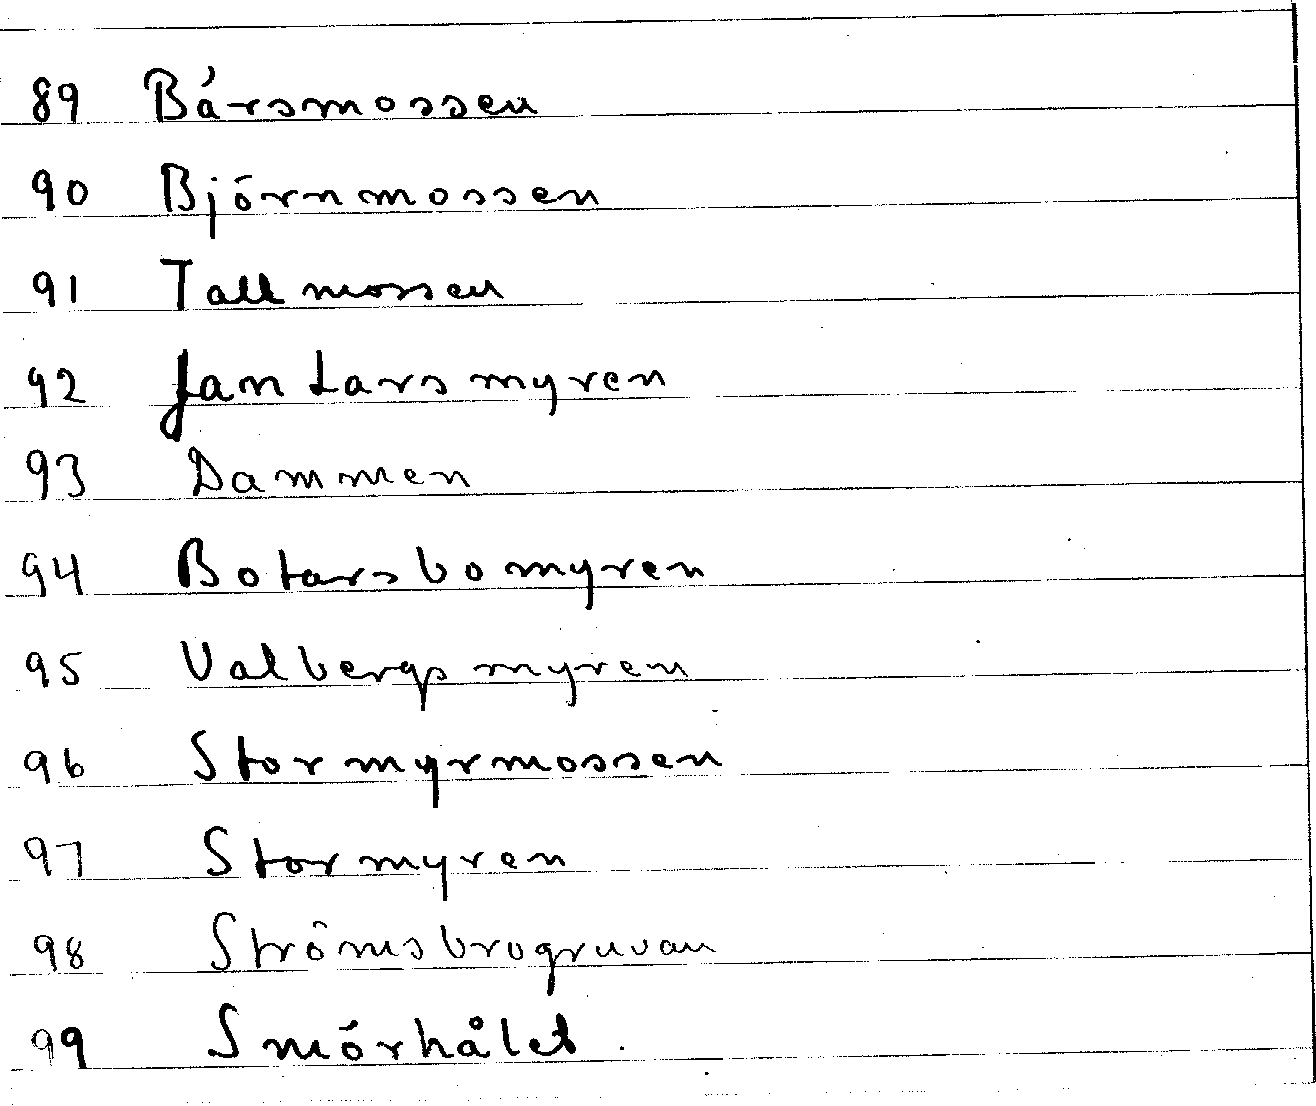 89 Bårsmossen
90 Björnmossen
91 Tallmossen
92 Jan Lars myren
93 Dammen
94 Botarsbomyren
95 Valbergsmyren
96 Stormyrmossen
97 Stormyren
98 Strömsbrogruvan
99 Smörhålet.